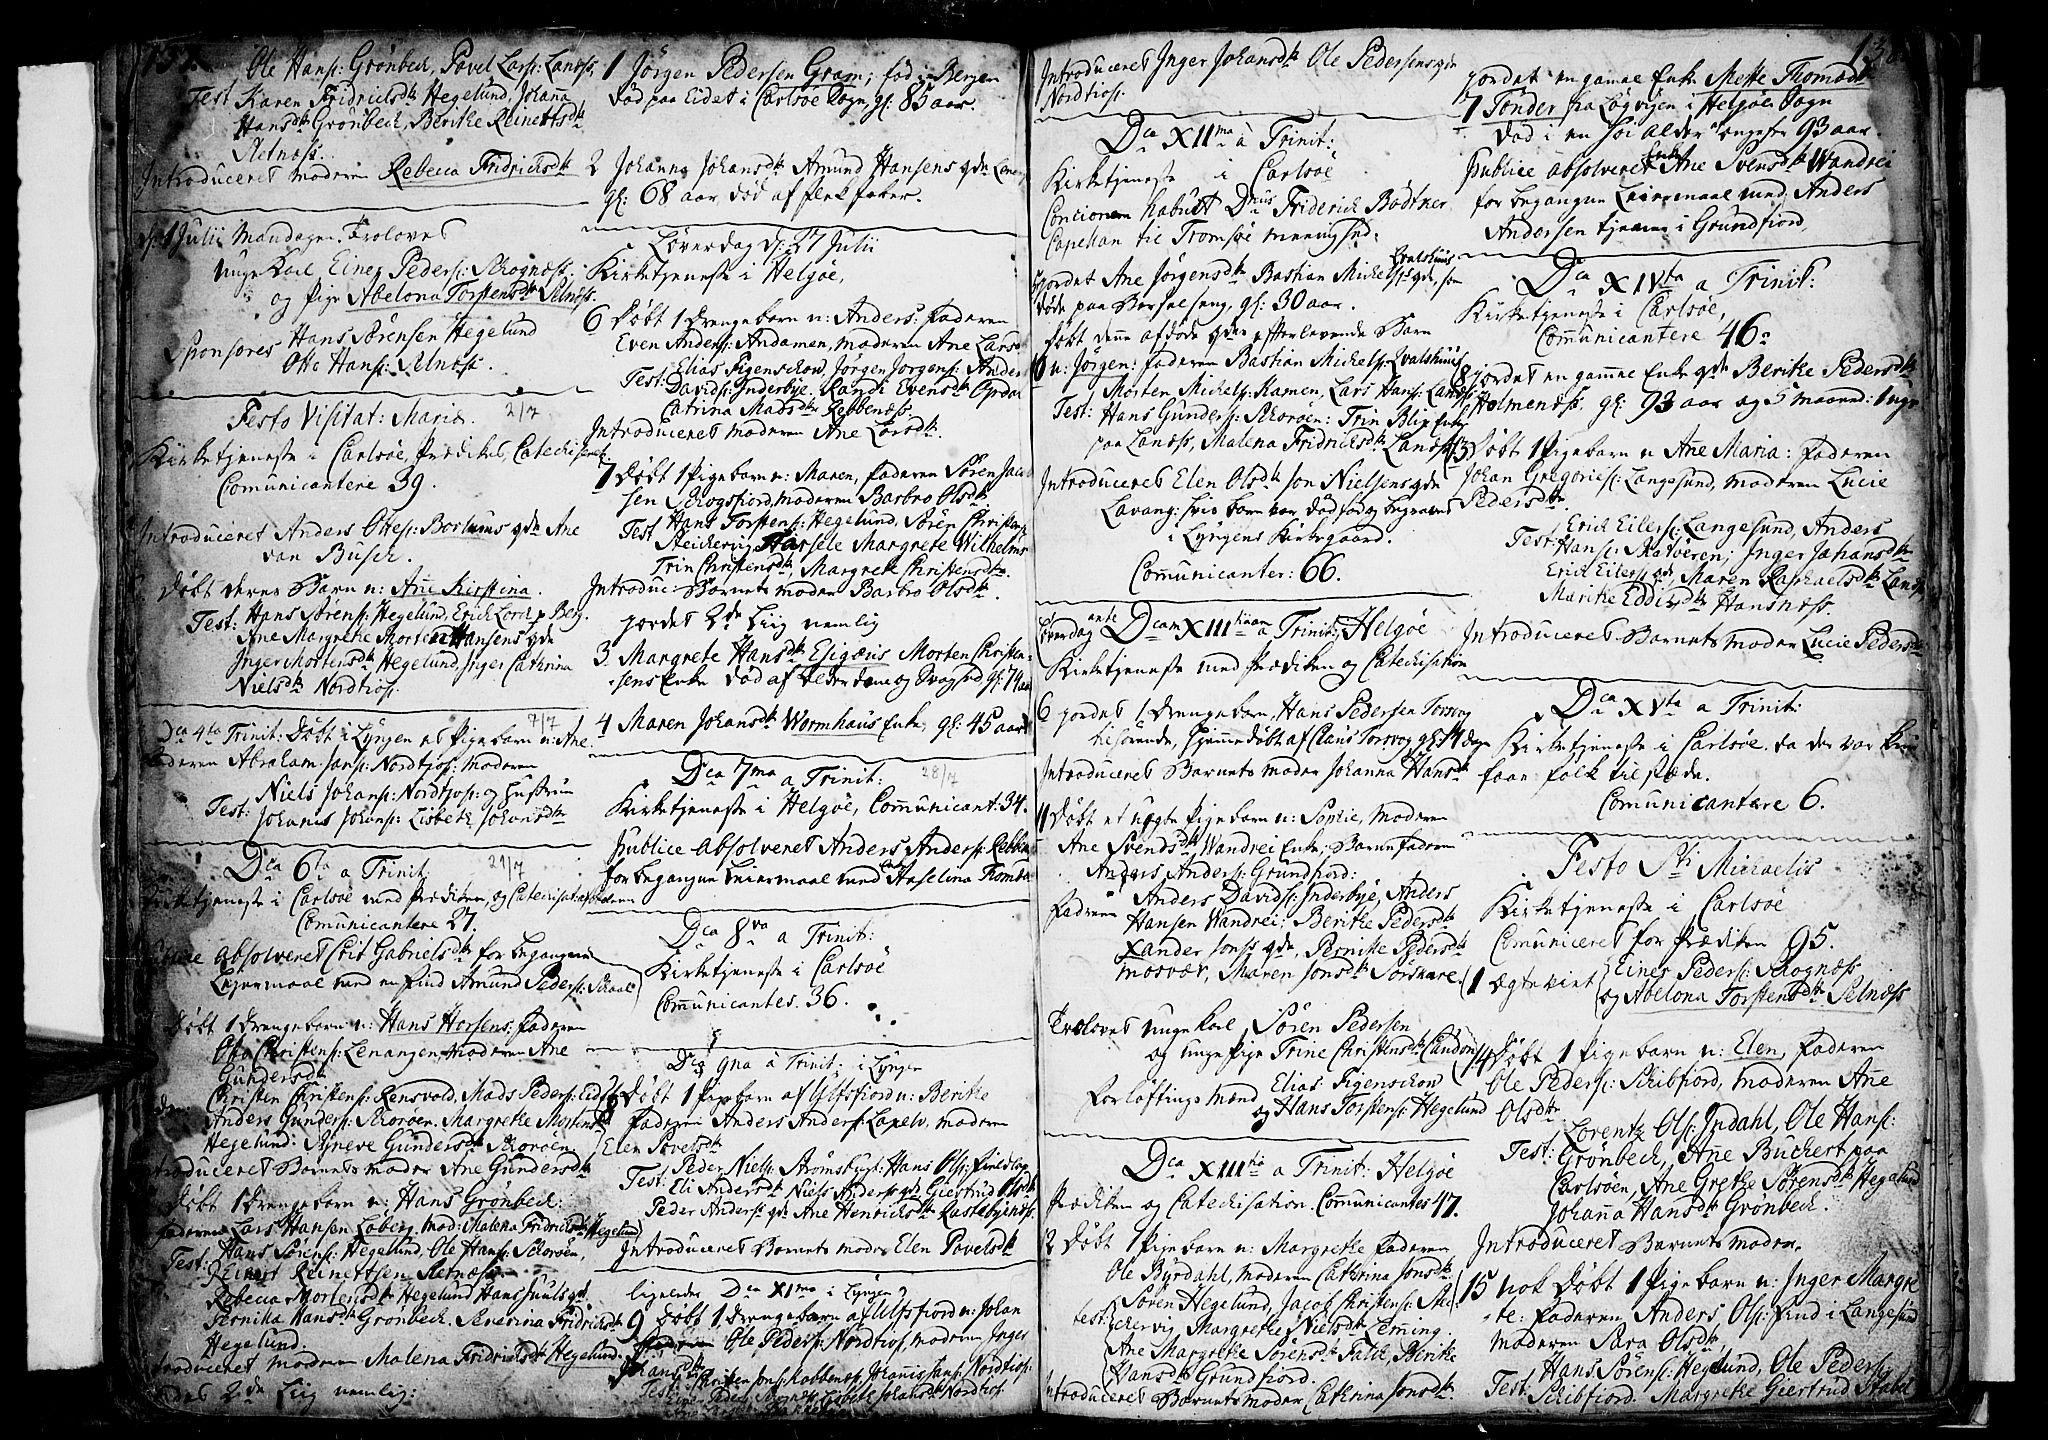 137.
Ole Hans: Grönbeck, Povel Lars: Lanæss,
Test Karen Fridrichsdtr Hegelund, Johanna
Hansdtr Grönbeck, Berithe Reinettsdtr
Retnæss.
Introduceret moderen Rebecca Fridrichsdtr
d: 1 Julii Mandagen. Trolovet
unge Karl, Einer Peders: Skognæss.
og Pige Abelona Torstensdtr Selnæss.
Sponsores Hans Sörensen Hegelund
Otte Hans: Selnæss.
Festo Visitat: Mariæ. 2/7
Kirketjeneste i Carlsöe, Prædiket, Catechiseret.
Comunicantere 39.
Introduceret Anders Ottes: Bortums qde Ane
van Busch.
Döbt deres Barn n: Ane Kirstina.
Test: Hans Sörens: Hegelund, Erich Lorch p Berg.
Ane Margrethe Morten Hansens qde
Inger Mortensdtr Hegelund, Inger Cathrina
Nielsdtr Nordtios.
Dca 4ta Trinit: Döbt i Lyngen et Pigebarn n: Ane. 7/7
Faderen Abraham Jans: Nordtjos: moderen
Niels Johans: Nordtjos: og Hustrue
Test: Johanis Johans: Lisbeth Johansdtr
Dca 6ta a Trinit: 21/7
Kirketjeneste i Carlsöe med Prædiken, og Catechisation
Comunicantere 27.
Publice Absolveret Cicil Gabrielsdtr for begangen
Leyermaal med en find Amund Peders: Skaal
Döbt 1 Drengebarn n: Hans Horsens: Faderen
Ole Christens: Lenangen, moderen Ane
Gundersdtr
Christen Christens: Rensvold, Mads Peders: Eid
Anders Gunders: Skoröen, Margrethe Mortensdtr
Hegelund: Agneve Gundersdtr Skoröen
Introduceret Barnets moder Ane Gundersdtr
Döbt 1 Drengebarn n: Hans Grönbeck:
Faderen Lars Hansen Löberg, mod: Malena Fridrichsdtr Hegelund
Test: Hans Sörens: Hegelund, Ole Hans: Skoröen,
Reinert Reinettsen Retnæss
Rebecca Mortensdtr Hegelund Hans Juuls qd.
Pernika Hansdtr Grönbeck, Severina Fridrichsdtr
Hegelund.
Introduceret moderen Malena Fridrichsdtr Hegelund.
Jordet 2de Liig nemlig:
1 Jörgen Pedersen Gram, föd i Bergen
död paa Eidet i Carlsöe Sogn, gl: 85 aar.
2 Johanna Johansdtr Amund Hansens qde
gl: 68 aar, död af flekfeber.
Löverdag d: 27 Julii
Kirketjeneste i Helgöe,
6 Döbt 1 Drengebarn n: Anders: Faderen
Even Anders: Andamen, moderen Ane Larsdtr
Test: Elias Figenschow, Jörgen Jorgens: Anders
Davids: Inderbye. Randi Evensdtr Opdal
Catrina Madsdtr Rebbenæss
Introduceret moderen Ane Larsdtr.
7 Döbt 1 Pigebarn n: Maren, Faderen Sören Jacob
sen Skogsfiord, moderen Barbro Olsdtr
Test Hans Torstens: Hegelund, Sören Christens
Steichervig Karsele Margrete Wilhelms
Trin Christensdtr, Margrete Christensdtr.
Introdu: Barnets moder Barbro Olsdtr.
jordet 2de Liig nemlig
3. Margrete Hansdtr Esigæus Morten Christen-
sens Enke död af Alderdom og Svaghed gl: 74 aar
4 Maren Johansdtr Wormhaus Enke, gl: 45 aar
Dca 7ma a Trinit: 28/7
Kirketjeneste i Helgöe, Comunicant: 34.
Publice Absolveret Anders Anders: Rebben
for begangen Leiermaal med Anselina Tromsø
Dca 8va a Trinit:
Kirketjeneste i Carlsöe
Comunicantes. 36.
Dca 9na a Trinit: i Lyngen
8 Döbt 1 Pigebarn af Ulfsfiord n: Berithe
Faderen Anders Anders: Lapelv, moderen
Elen Povelsdtr
Test: Peder Niels: Strömsbyet: Hans Ols:
Eli Andersdtr Niels Anders: qde Giertrud Olsdtr
Peder Anders: qde Ane Henrichsdtr Rastebynæss
Introduceret Barnets moder Elen Povelsdtr
ligeledes Dca XIma i Lyngen
9 Döbt 1 Drengebarn af Ulfsfiord n: Johan
Ole Peders: Nordtios, moderen Inger
Johansdtr
Test: Christen Jons: Rabbenæs, Johannis Jans: Nordtios:
Einer Peders: Skognæs Lisbeth Johansdtr Nordtios
Introduceret Inger Johansdtr Ole Pedersens qde
Nordtios.
Dca XIIma à Trinit:
Kirketjeneste i Carlsöe
Concionem habuit Dnus Friderich Bödtker
Capellan til Tromsöe menighed.
5 jordet Ane Jörgensdtr Bastian Michels: Hvalshuus qde, som
döde paa Barselseng, gl: 30 aar.
döbt denne afdöde qdes efterlevende Barn
10 n: Jörgen: Faderen Bastian Michels: Hvalshuus
Morten Michels: Kamen, Lars Hans: Lanæss
Test: Hans Gunders: Skoroen: Trin Blix Enke
paa Lanæss, Malena Fridrichsdtr Lanæss
Introduceret Elen Olsdtr Jon Nielsens qde
Lavang: hvis barn var dödföd og begravet
i Lyngens Kirkegaard.
Comunicanter: 66.
Löverdag ante Dcam XIIItiam a Trinit: Helgöe
Kirketjeneste med Prædiken og Catechisation
6 jordet 1 Drengebarn, Hans Pedersen Torsvog
hisörende, hjemmedöbt af Claus Torsvog gl 14 dage
Introduceret Barnets moder Johanna Hansdtr
11 Döbt et uægte Pigebarn n: Sophie, moderen
Ane Svendsdtr Wandrei Enke, Barnefaderen
Anders Anders: Grundfiord:
Fadrene Anders Davids: Inderbye, Anders
Hansen Wandrei: Berithe Pedersdtr
Xander Jonss qde, Pernike Pedersdtr
Mosvær, Maren Jonsdtr Sörskare.
Trolovet unge Karl Sören Pedersen
og unge Pige Trine Christensdtr Lundöe
Forlöftings mænd Elias Figenschow
og Hans Torstens: Hegelund
Dca XIIItia a Trinit: Helgöe
Prædiken og Catechisation. Comunicantes 47.
12 Döbt 1 Pigebarn n: Margrethe Faderen
Ole Byrdahl, moderen Cathrina Jonsdtr
Test: Sören Hegelund, Jacob Christens: Ste
chervig Margrethe Nielsdtr Lemming.
Ane Margrethe Sörensdtr Falck, Berithe
Hansdtr Grundfiord.
Introduceret Barnets moder Cathrina Jonsdtr.
138
jordet en gamel Enke Mette Thomædtr
7 Tönder fra Løgvigen i Helgöe Sogn
död i en höi Alder af ongefer 93 aar.
Publice absolveret Enke Ane Svensdtr Wandrei
for begangen Leiermaal med Anders
Andersen tjenne i Grundfiord,
Dca XIVta a Trinit:
Kirketjeneste i Carlsöe,
Comunicantere 46.
8 jordet en gamel Enke qde Berithe Pedersdtr
Holmenæss, gl: 93 aar og 5 maaned: 1 uge
13 Döbt 1 Pigebarn n: Ane Maria: Faderen
Johan Gregories: Langesund, moderen Lucie
Pedersdtr
Test: Erich Eilers: Langesund, Anders
Hans: Ratöeren, Inger Johansdtr
Erich Eilers: qde, Maren Raphaelsdtr Langes
Marithe Eddisdtr Hansnæss.
Introduceret Barnets moder Lucie Pedersdtr
Dca XVta a Trinit:
Kirketjeneste i Carlsöe, da der var kun
faae folk tilstæde.
Comunicantere 6.
Festo Sti Michaelis
Kirketjeneste i Carlsöe
Comuniceret for Prædiken 95.
1 ægteviet Einer Peders: Skognæss
og Abelona Torstensdtr Selnæss
14 Döbt 1 Pigebarn n: Elen, Faderen
Ole Peders: Schibfiord, moderen Ane
Olsdtr
Test: Lorentz Ols: Indahl, Ole Hans:
Grönbeck, Ane Buchert paa
Carlsöen, Ane Grethe Sörensdtr Hegelund
Johanna Hansdtr Grönbeck.
Introduceret Barnets moder.
15 nok Döbt 1 Pigebarn n: Inger Margre
te: Faderen, Anders, Ols: Find i Langesund
moderen Sara Olsdtr
Test: Hans Sörens: Hegelund, Ole Peders:
Schibfiord. Margrethe Giertrud Stabel